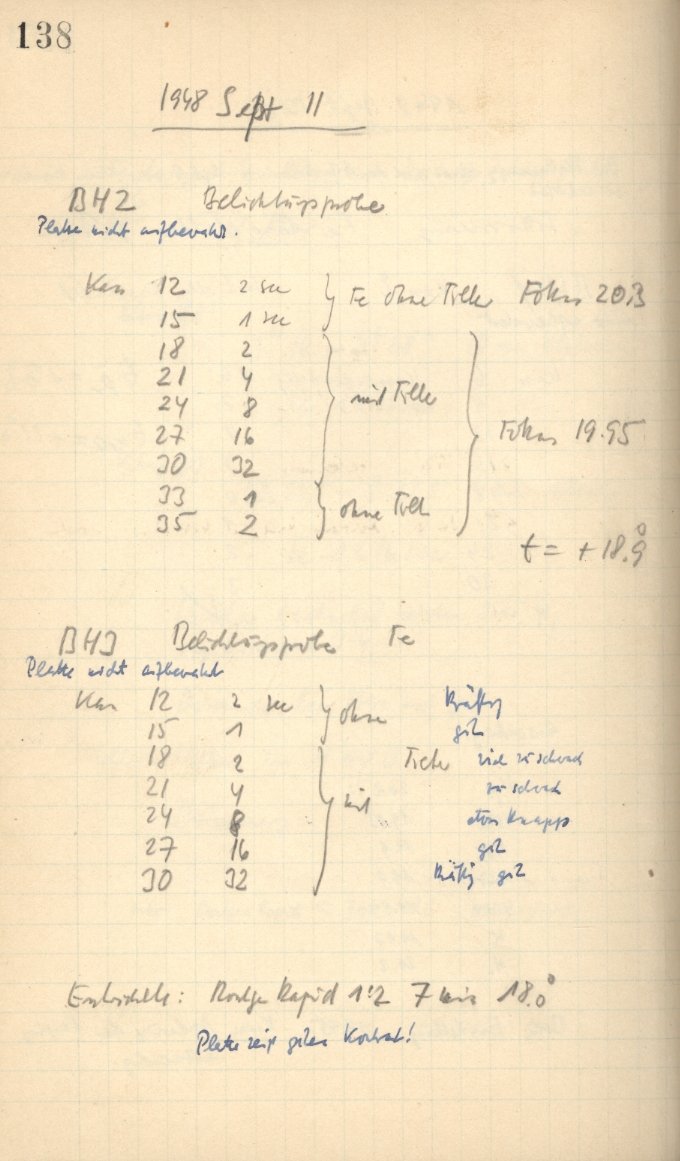 138
1948 Sept 11
BH2 Belichtungsprobe
Platte nicht aufbewahrt.
Kass 12 2 sec Fe ohne Tiefe Fokus 20.3
15 1 sec
18 2
21 4 mit
24 8
27 16 Fokus 19.95
30 32
33 1 ohne
35 2
t = + 18.9°
BH3 Belichtungsprobe Fe
Platte nicht aufbewahrt
12 2 sec ohne Kräftig
15 1 gut
18 2 viel zu schwach
21 4 mit zu schwach
24 8 etwas knapp
27 16 gut
30 32 Kräftig gut
Entwickelt: Rapid 1:2 7 min 18.0°
Platte zeigt guten Kontrast!